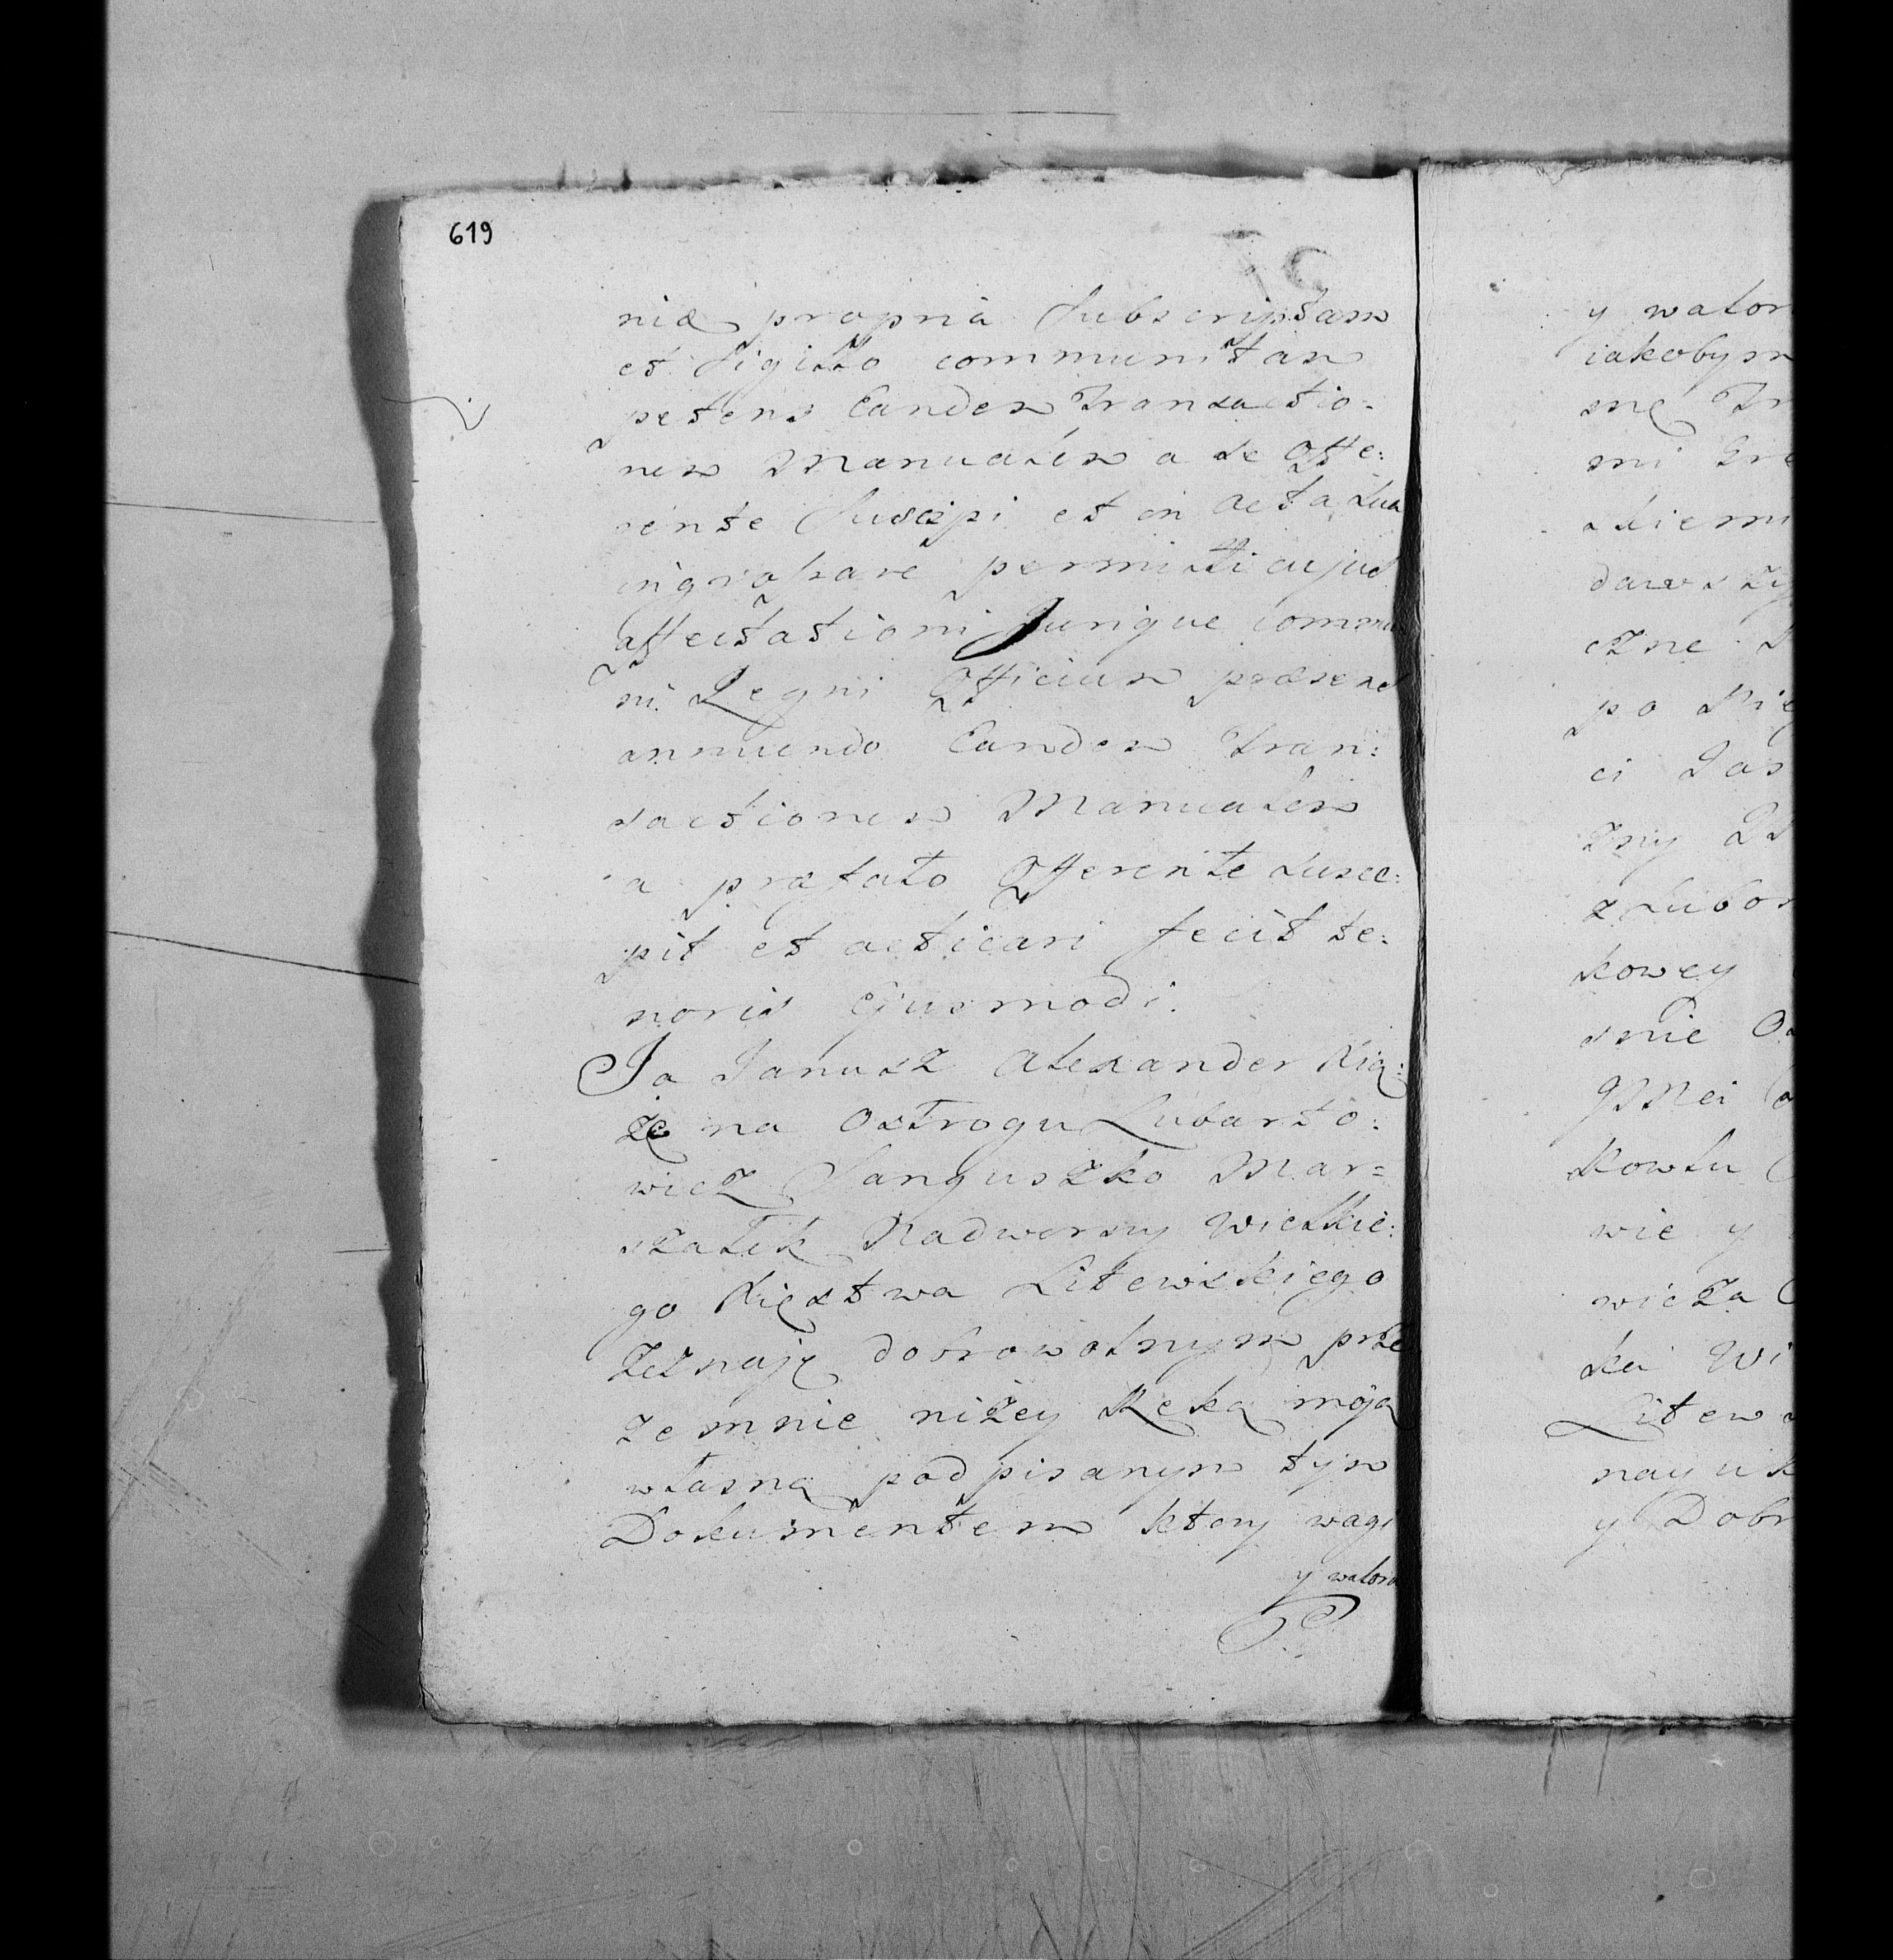 619
niæ propria Subscriptam
et Sigillo communitam
petens Eandem Transactio:
nem Manualem a se Offe:
rente Suscipi et in Acta sua
ingrossare permitti cujus
affectationi Jurique commu
ni Regni Officium præsens
annuendo Eandem Tran:
sactionem Manualem
a præfato Offerente susce:
pit et acticari fecit te:
noris ejusmodi.
Ja Janusz Alexander Xią:
żę na Ostrogu Lubarto:
wicz Sanguszko Mar=
szałek Nadworny Wielkie:
go Xięstwa Litewskiego
Zeznaję dobrowolnym prze
ze mnie niżey Ręką moją
własną podpisanym tym
Dokumentem ktory wagi
y walor
y walor
iakobym
mę Tr
mi Gre
skiemi
dawszy
czne
po Xię
ci Jas
zny
z Lubo
kowey
snie
Kowlu
wie y
wicza
ka Wi
Litew
nayuk
y Dobr